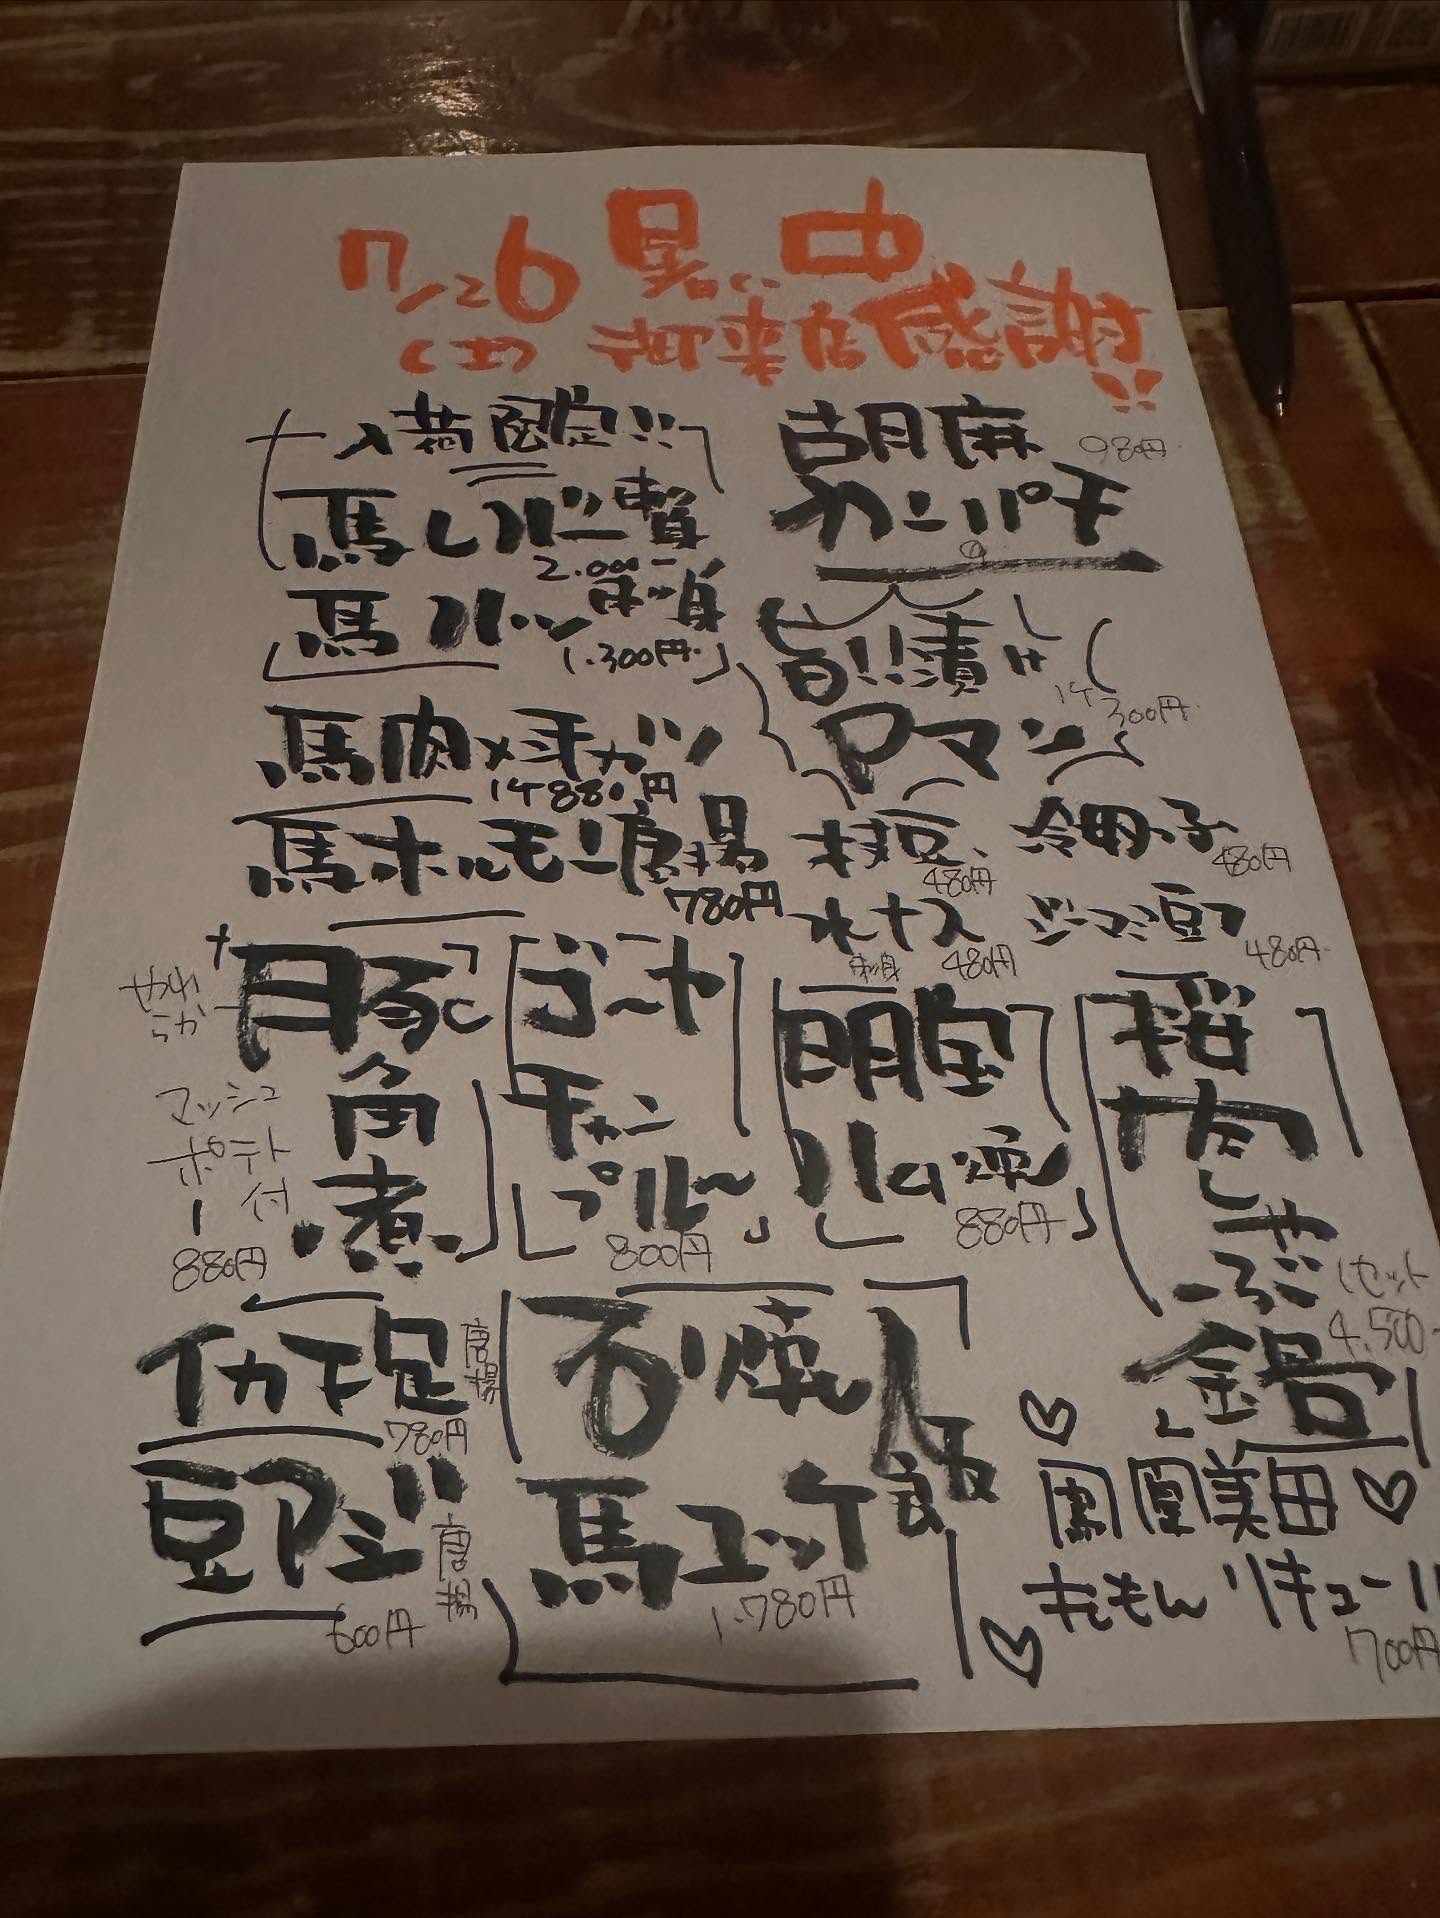 7/26 暑い中
(土) 御来店感謝!!
入荷限定!!
馬レバー刺
2.000-
馬ハツ刺身
1.300円
馬肉メンチカツ
1ケ 880円
馬ホルモン唐揚
780円
胡麻
980円
カンパチ
旨!!漬け
1ケ
300円
アマン
枝豆
480円
冷田子
480円
水ナス
刺身
480円
ジーマミ豆フ
480円
やわらか
豚
角
煮
マッシュ
ポテト
付
880円
ゴーヤ
チャン
プルー
800円
明宝
ハム焼
880円
桜
肉
しゃ
ぶ
鍋
1セット
4,500-
イカ下足
唐揚
780円
豆アジ
唐揚
600円
石焼
馬ユッケ飯
1.780円
鳳凰美田
れもんリキュール
700円